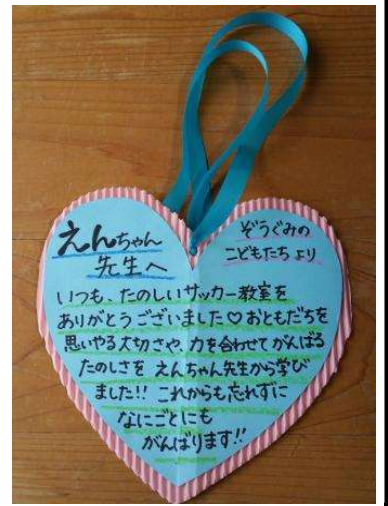 えんちゃん
先生へ
ぞうぐみの
こどもたちより
いつも、たのしいサッカー教室を
ありがとうございました♡おともだちを
思いやる大切さや、力を合わせてがんばる
たのしさを えんちゃん先生から学び
ました!! これからも忘れずに
なにごとにも
がんばります!!